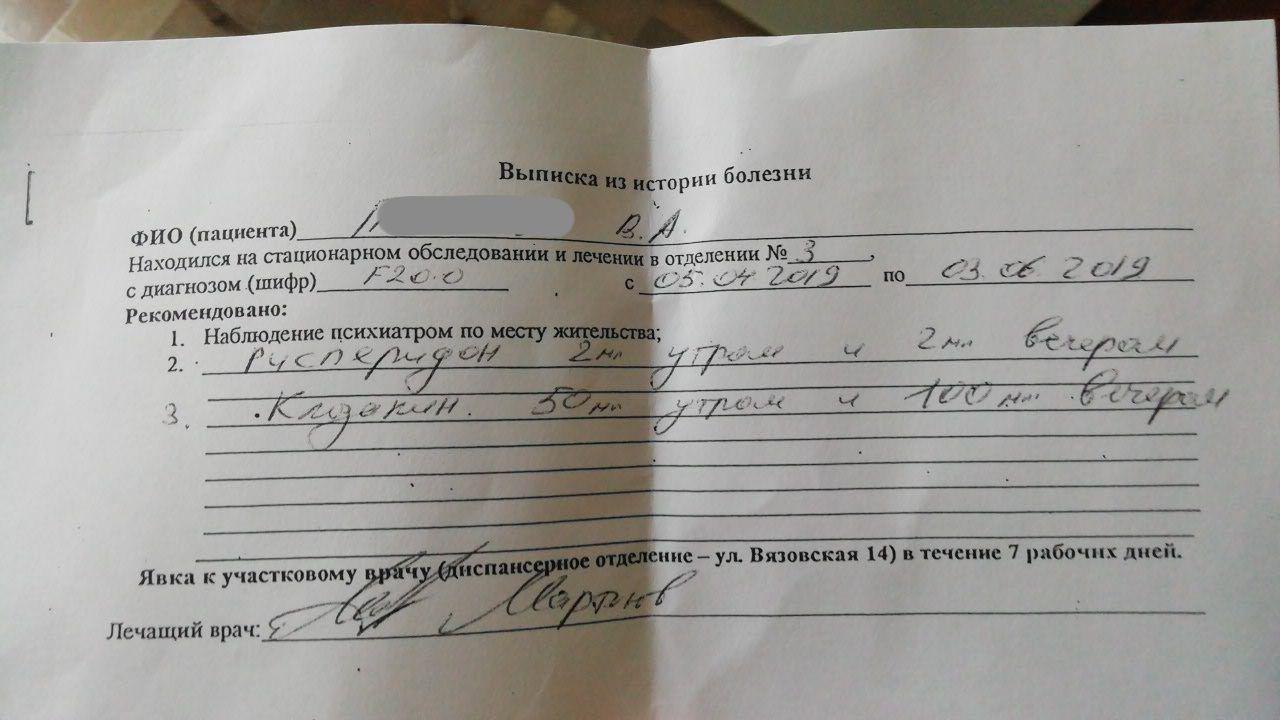 Выписка из истории болезни
ФИО (пациента) В.А.
Находился на стационарном обследовании и лечении в отделении № 3,
с диагнозом (шифр) F20.0 с 05.04 2019 по 03.06 2019
Рекомендовано:
1. Наблюдение психиатром по месту жительства;
2. Рисперидон 2мг утром и 2мг вечером
3. Клозапин. 50мг утром и 100мг вечером
Явка к участковому врачу (диспансерное отделение – ул. Вязовская 14) в течение 7 рабочих дней.
Лечащий врач: Мартынов